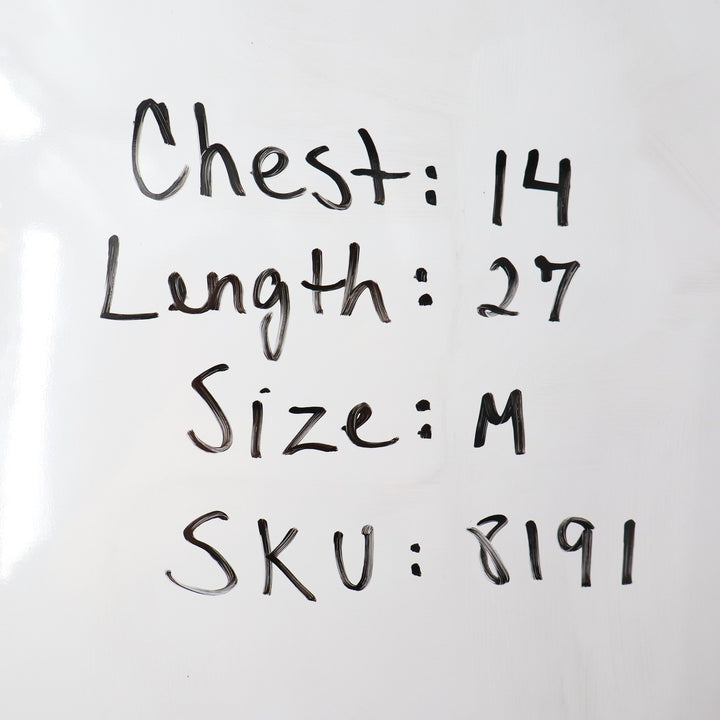 Chest: 14
Length: 27
Size: M
SKU: 8191